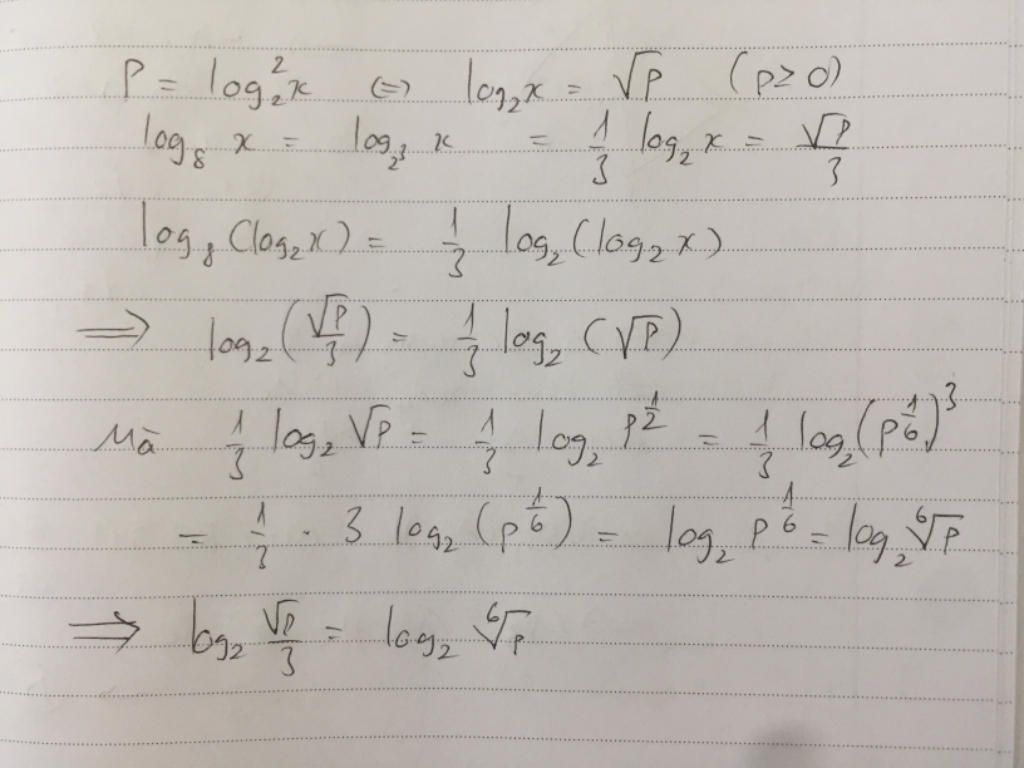 P = log₂²x ⇔ log₂x = √P (p ≥ 0)
log₈ x = log₂³ x = 1/3 log₂ x = √P/3
log₈ (log₂x) = 1/3 log₂(log₂x)
⟹ log₂(√P/3) = 1/3 log₂ (√P)
Mà 1/3 log₂ √P = 1/3 log₂ P^(1/2) = 1/3 log₂(P^(1/6))³
= 1/3 . 3 log₂ (P^(1/6)) = log₂ P^(1/6) = log₂ ⁶√P
⟹ log₂ √P/3 = log₂ ⁶√P